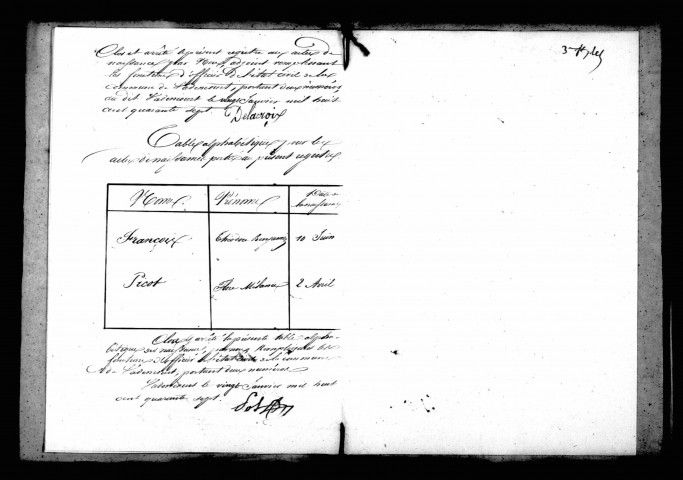 Clos et arrêté le présent registre aux actes de
naissance par Nous adjoint remplissant
les fonctions d'officier de l'état civil de la
commune de portant deux numéros
au dit le vingt Janvier mil huit
cent quarante sept.
Delacroix
Table alphabétique, sur les
actes de naissance portés au présent registre.
Noms. Prénoms Date de naissance
François 10 Juin
Picot Mélanie 2 Avril
Clos et arrêté la présente table alpha-
bétique des naissances, remplissant les
fonctions d'officier de l'état civil de la commune
de portant deux numéros
le vingt Janvier mil huit
cent quarante sept.